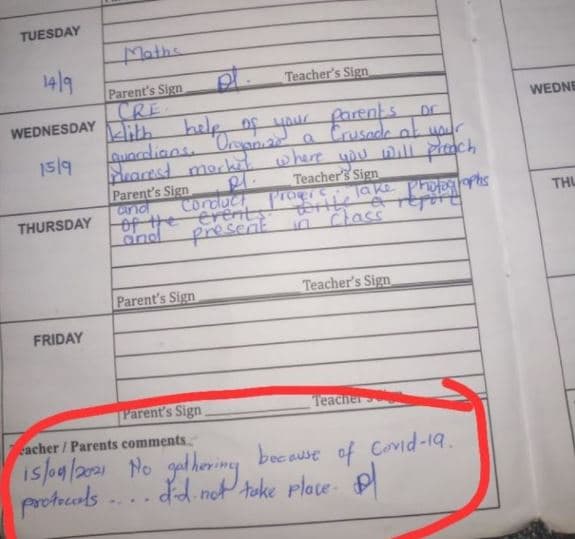 TUESDAY
Maths
14/9
Parent's Sign
Teacher's Sign
WEDNESDAY
15/9
CRE.
With help of your parents or
guardians. Organize a Crusade at your
nearest market where you will preach
Parent's Sign
Teacher's Sign
and conduct prayers. Take photographs
of the events. Write a report
and present in class
THURSDAY
Parent's Sign
Teacher's Sign
FRIDAY
Parent's Sign
Teacher's Sign
Teacher / Parents comments
15/09/2021 No gathering because of Covid-19.
protocols .... did not take place.
WEDNE
THU